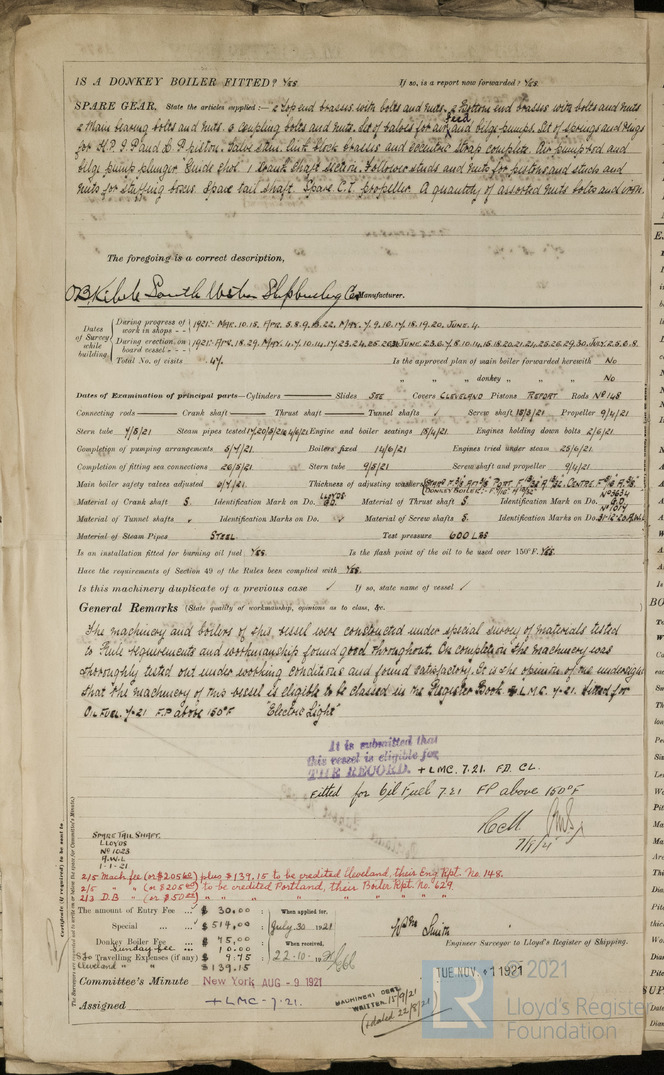 IS A DONKEY BOILER FITTED? Yes. If so, is a report now forwarded? Yes.
SPARE GEAR. State the articles supplied:— 2 top end brasses with bolts and nuts. 2 Bottom end brasses with bolts and nuts
2 Main bearing bolts and nuts. 3 coupling bolts and nuts. Set of valves for air feed and bilge pumps. Set of springs and rings
for H.P. I.P and L.P piston. Valve stem link block brasses and eccentric strap complete. Air pump rod and
bilge pump plunger. Guide shoe. 1 Crank shaft section. Follower studs and nuts for pistons and studs and
nuts for stuffing boxes. Spare tail shaft. Spare C.I. propeller. A quantity of assorted nuts bolts and iron.
The foregoing is a correct description,
South Western Shipbuilding Co Manufacturer.
Dates of Survey while building
During progress of work in shops - - 1921:- Mar. 10. 15. Apr. 5. 8. 9. 13. 22. May. 7. 9. 16. 17. 18. 19. 20. June. 4.
During erection on board vessel - - - 1921:- Apr. 18. 29. May. 4. 7. 10. 14. 17. 23. 24. 25. June 2. 3. 6. 7. 8. 10. 14. 15. 18. 20. 21. 24. 25. 28. 29. 30. July 2. 5. 6. 8.
Total No. of visits 47. Is the approved plan of main boiler forwarded herewith No
" " " donkey " " " No
Dates of Examination of principal parts—Cylinders — Slides See Covers Cleveland Pistons Report Rods No 148
Connecting rods — Crank shaft — Thrust shaft — Tunnel shafts ✓ Screw shaft 18/3/21 Propeller 9/4/21
Stern tube 7/5/21 Steam pipes tested Engine and boiler seatings 18/4/21. Engines holding down bolts 2/6/21.
Completion of pumping arrangements 5/7/21. Boilers fixed 14/6/21 Engines tried under steam 25/6/21.
Completion of fitting sea connections 20/5/21 Stern tube 9/5/21 Screw shaft and propeller 9/4/21
Main boiler safety valves adjusted 6/7/21. Thickness of adjusting washers
Material of Crank shaft S. Identification Mark on Do. Lloyds Material of Thrust shaft S. Identification Mark on Do. No 3634
Material of Tunnel shafts ✓ Identification Marks on Do. ✓ Material of Screw shafts S. Identification Marks on Do. No 1014 31-12-20 A.W.L
Material of Steam Pipes Steel. Test pressure 600 Lbs
Is an installation fitted for burning oil fuel Yes. Is the flash point of the oil to be used over 150°F. Yes.
Have the requirements of Section 49 of the Rules been complied with Yes.
Is this machinery duplicate of a previous case ✓ If so, state name of vessel ✓
General Remarks (State quality of workmanship, opinions as to class, &c.
The machinery and boilers of this vessel were constructed under special survey of materials tested
to Rule requirements and workmanship found good throughout. On completion the machinery was
thoroughly tested out under working conditions and found satisfactory. It is the opinion of the undersigned
that the machinery of this vessel is eligible to be classed in the Register Book + L.M.C. 7-21. fitted for
Oil Fuel. 7-21 F.P above 150°F "Electric Light"
It is submitted that
this vessel is eligible for
THE RECORD. + LMC. 7.21. FD. CL.
Fitted for Oil Fuel 7.21 FP above 150°F
Spare Tail Shaft.
Lloyds
No 1023
A.W.L
1-1-21
2/5 Mach fee (or $205.60) plus $139.15 to be credited Cleveland, their Eng. Rpt. No. 148.
2/5 " " (or $205.60) to be credited Portland, their Boiler Rpt. No. 629.
2/3 D.B " (or $50.00) " " " " " " "
Certificate (if required) to be sent to
The amount of Entry Fee ... $ 30.00 When applied for,
Special ... $ 514.00 July.30 1921
Donkey Boiler Fee $ 75.00 When received,
Sunday fee 10.00
Travelling Expenses (if any) $ 9.75 22-10- 1921
Cleveland " " $139.15
Smith
Engineer Surveyor to Lloyd's Register of Shipping.
Committee's Minute New York AUG - 9 1921
TUE. NOV. 1 1921
Assigned + LMC-7.21.
MACHINERY CERT.
WRITTEN 15/9/21
(dated 22/8/21)
© 2021
Lloyd's Register
Foundation